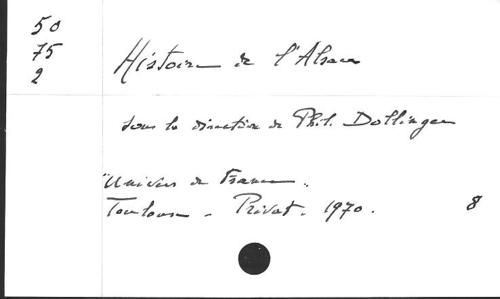 50
75
2
Histoire de l'Alsace
sous la direction de Phil. Dollinger
"Univers de France".
Toulouse - Privat - 1970.
8